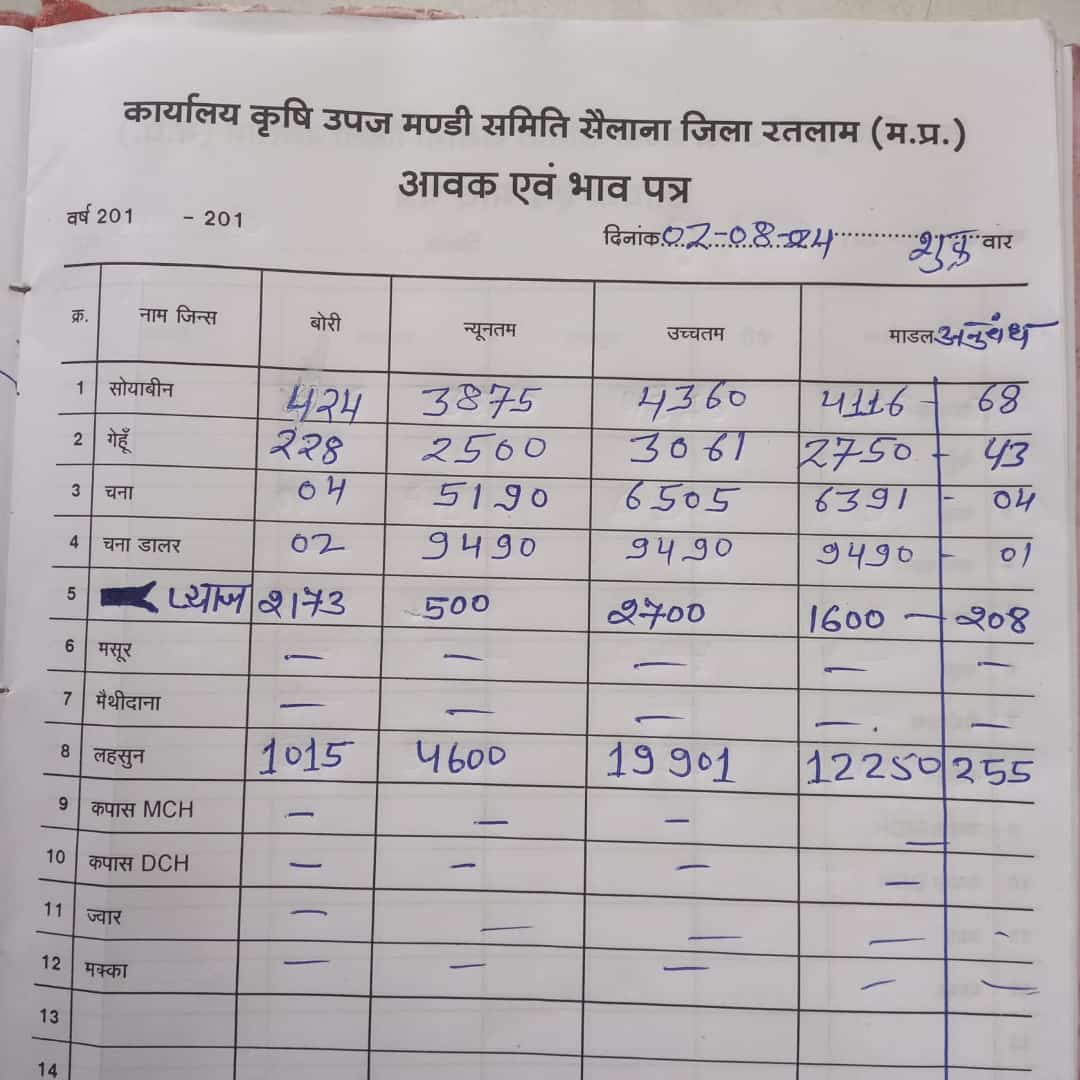 कार्यालय कृषि उपज मण्डी समिति सैलाना जिला रतलाम (म.प्र.)
आवक एवं भाव पत्र
वर्ष 201 - 201
दिनांक 02-08-24 शुक्र वार
क्र. नाम जिन्स बोरी न्यूनतम उच्चतम माडल अनुबंध
1 सोयाबीन 424 3875 4360 4116 - 68
2 गेहूँ 228 2500 3061 2750 - 43
3 चना 04 5190 6505 6391 - 04
4 चना डालर 02 9490 9490 9490 - 01
5 प्याज 2173 500 2700 1600 - 208
6 मसूर — — — — —
7 मैथीदाना — — — — —
8 लहसुन 1015 4600 19901 12250 255
9 कपास MCH — — — —
10 कपास DCH — — — —
11 ज्वार — — — — -
12 मक्का — — — — —
13
14